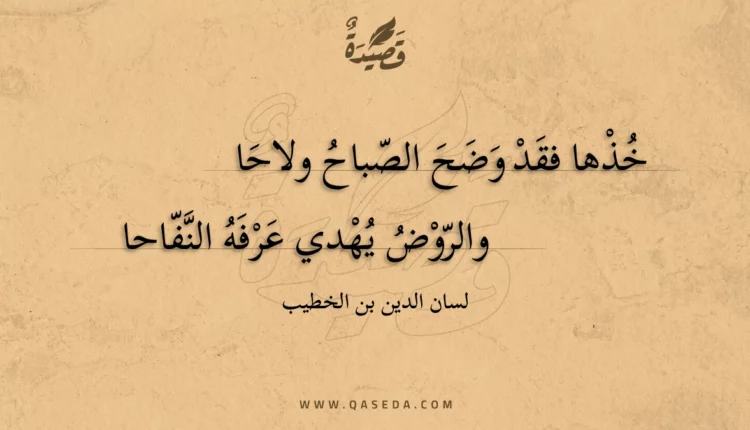 قَصِيْدَةٌ
خُذْها فقَدْ وَضَحَ الصّباحُ ولاحَا
والرّوْضُ يُهْدي عَرْفَهُ النَّفّاحا
لسان الدين بن الخطيب
WWW.QASEDA.COM